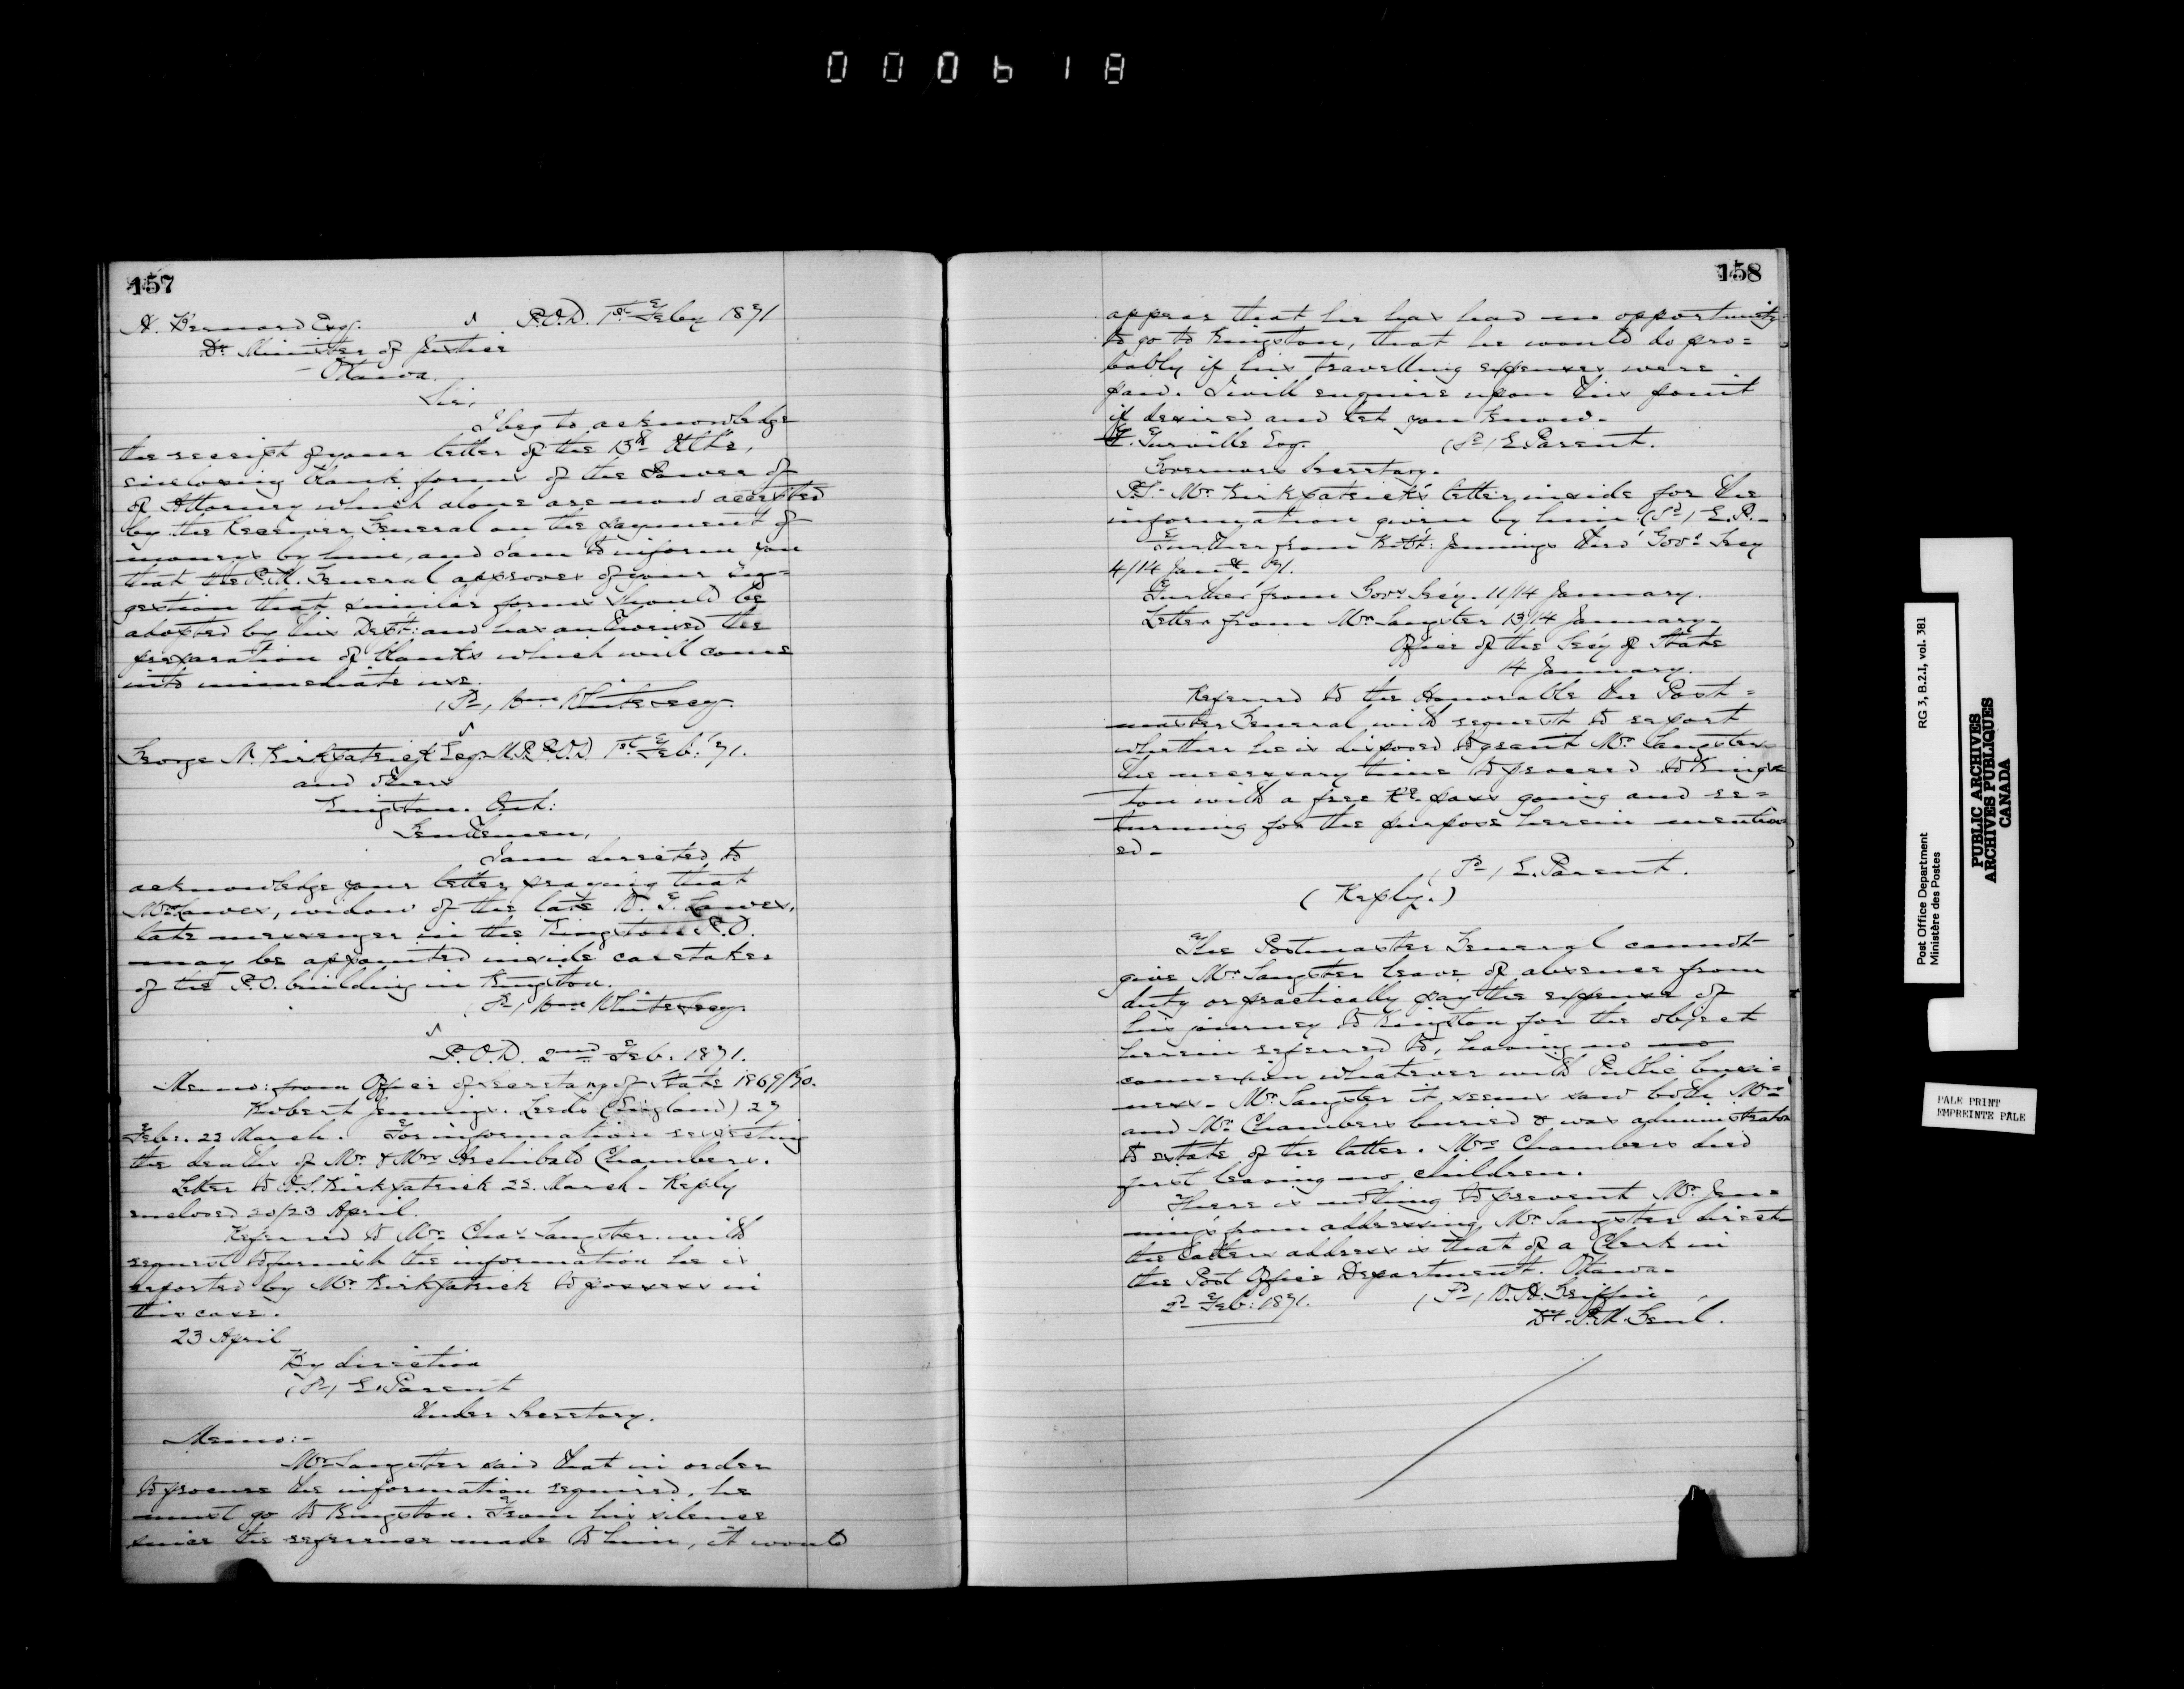 000618
157
H. Bernard Esq. P.O.D. 1st Feby 1871
Dy. Minister of Justice
Ottawa
Sir,
I beg to acknowledge
the receipt of your letter of the 13th Ulto,
enclosing blank forms of the Power of
of Attorney which alone are now accepted
by the Receiver General on the payment of
moneys by him, and I am to inform you
that the P.M. General approves of your sug=
gestion that similar forms should be
adopted by this Dept: and has authorized the
preparation of blanks which will come
into immediate use.
(Sd) Wm White Secy.
George A. Kirkpatrick Esq. M.P. P.O.D 1st Feb: '71.
and others
Kingston. Ont:
Gentlemen,
I am directed to
acknowledge your letter praying that
Mrs Lawes, widow of the late W. F. Lawes,
late messenger in the Kingston P.O.
may be appointed inside caretaker
of the P.O. building in Kingston.
(Sd) Wm White Secy.
P.O.D. 2nd Feb. 1871.
Memo: from Office of Secretary of State 1869/70.
Robert Jennings. Leeds (England) 27
Feby. 23 March. For information respecting
the deaths of Mr & Mrs Archibald Chambers.
Letter to Kirkpatrick 25. March - Reply
enclosed 20/23 April.
Referred to Mr Chas Sangster. with
request to furnish the information he is
reported by Mr Kirkpatrick to possess in
this case.
23 April
By direction
(Sd) E. Parent
Under Secretary.
Memo:-
Mr Sangster said that in order
to procure the information required, he
must go to Kingston. From his silence
since the reference made to him, it would
158
appear that he has had no opportunity
to go to Kingston, that he would do pro=
bably if his travelling expenses were
paid. I will enquire upon this point
if desired and let you know.
F. Turville Esq. (Sd) E. Parent.
Governor's Secretary.
P.S. - Mr Kirkpatrick's letter inside for the
information given by him (Sd) E.P. -
Further from Robt: Jennings thro' Govrs Secy
4/14 Jany. 71.
Further from Govrs Secy. 11/14 January.
Letter from Mr Sangster 13/14 January.
Office of the Secy of State
14 January.
Referred to the Honorable the Post=
master General with request to report
whether he is disposed to grant Mr Sangster
the necessary time to proceed to Kings
ton with a free Ry. pass going and re=
turning for the purpose herein mention
ed -
(Sd) E. Parent.
(Reply.)
The Postmaster General cannot
give Mr Sangster leave of absence from
duty or practically pay the expense of
his journey to Kingston for the object
herein referred to, having no no
connexion whatever with Public busi=
ness. Mr Sangster it seems saw both Mrs
and Mr Chambers buried & was administrator
to estate of the latter. Mrs Chambers died
first leaving no children.
There is nothing to prevent Mr Jen=
nings from addressing Mr Sangster direct
the latter's address is that of a Clerk in
the Post Office Department. Ottawa -
2d Feb: 1871. (Sd) W. H. Griffin
Dy. P.M. Genl.
Post Office Department RG 3, B.2.I, vol. 381
Ministère des Postes
PUBLIC ARCHIVES
ARCHIVES PUBLIQUES
CANADA
PALE PRINT
EMPREINTE PALE